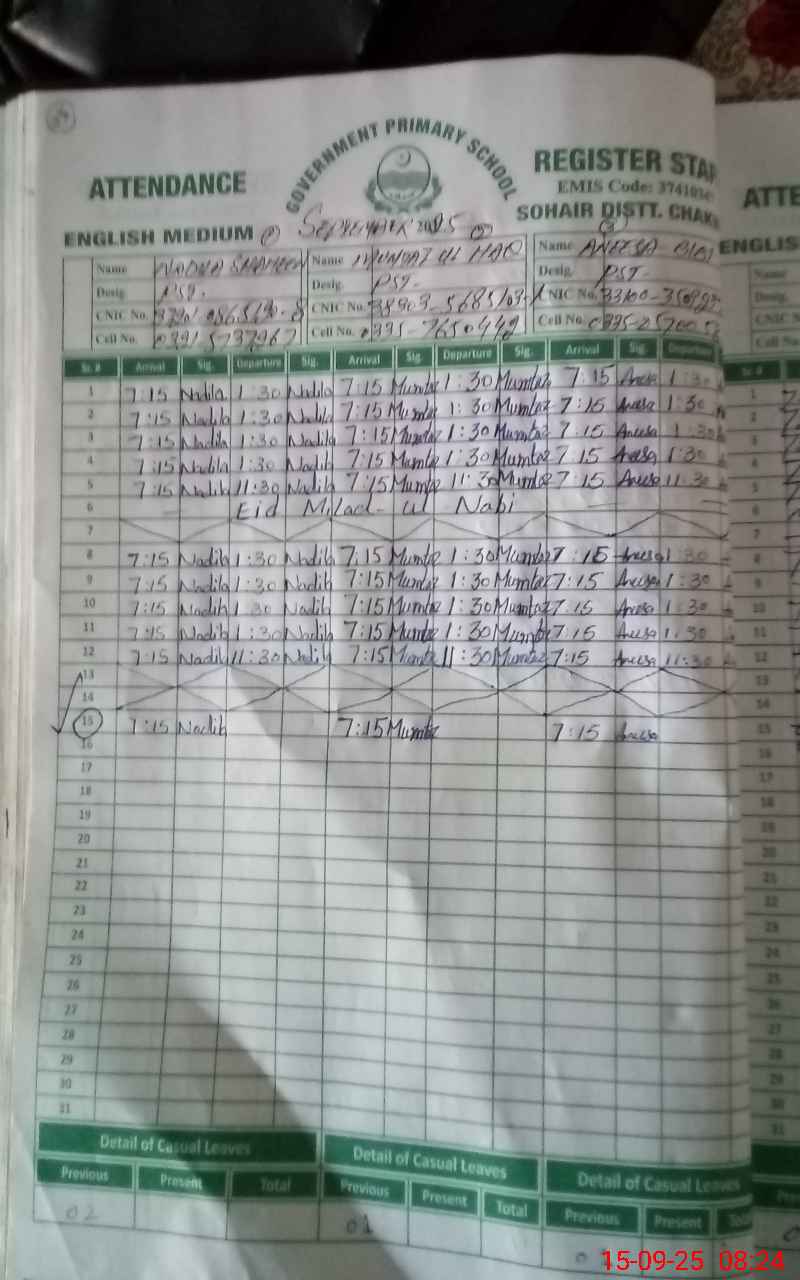 GOVERNMENT PRIMARY SCHOOL
ATTENDANCE REGISTER
EMIS Code:
ENGLISH MEDIUM SEPTEMBER 2025 SOHAIR DISTT.
ATTE
ENGLIS
Name Name Name ANEESA BIBI
Desig. PST. Desig. PST. Desig. PST.
CNIC No. CNIC No. CNIC No.
Cell No. Cell No. 0335-7650442 Cell No.
Sr. # Arrival Sig. Departure Sig. Arrival Sig. Departure Sig. Arrival Sig. Departure
1 7:15 Nadila 1:30 Nadila 7:15 Mumtaz 1:30 Mumtaz 7:15 Aneesa 1:30
2 7:15 Nadila 1:30 Nadila 7:15 Mumtaz 1:30 Mumtaz 7:15 Aneesa 1:30
3 7:15 Nadila 1:30 Nadila 7:15 Mumtaz 1:30 Mumtaz 7:15 Aneesa 1:30
4 7:15 Nadila 1:30 Nadila 7:15 Mumtaz 1:30 Mumtaz 7:15 Aneesa 1:30
5 7:15 Nadila 11:30 Nadila 7:15 Mumtaz 11:30 Mumtaz 7:15 Aneesa 11:30
6 Eid Milad- ul Nabi
7
8 7:15 Nadila 1:30 Nadila 7:15 Mumtaz 1:30 Mumtaz 7:15 Aneesa 1:30
9 7:15 Nadila 1:30 Nadila 7:15 Mumtaz 1:30 Mumtaz 7:15 Aneesa 1:30
10 7:15 Nadila 1:30 Nadila 7:15 Mumtaz 1:30 Mumtaz 7:15 Aneesa 1:30
11 7:15 Nadila 1:30 Nadila 7:15 Mumtaz 1:30 Mumtaz 7:15 Aneesa 1:30
12 7:15 Nadila 11:30 Nadila 7:15 Mumtaz 11:30 Mumtaz 7:15 Aneesa 11:30
13
14
15 7:15 Nadila 7:15 Mumtaz 7:15 Aneesa
16
17
18
19
20
21
22
23
24
25
26
27
28
29
30
31
Detail of Casual Leaves Detail of Casual Leaves Detail of Casual Leaves
Previous Present Total Previous Present Total Previous Present Total
02 01
15-09-25 08:24